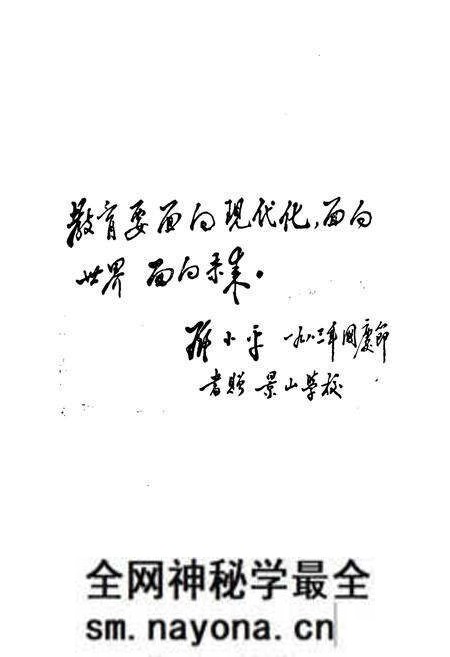 教育要面向现代化,面向
世界 面向未来。
邓小平 一九八三年国庆节
书赠 景山学校
全网神秘学最全
sm.nayona.cn